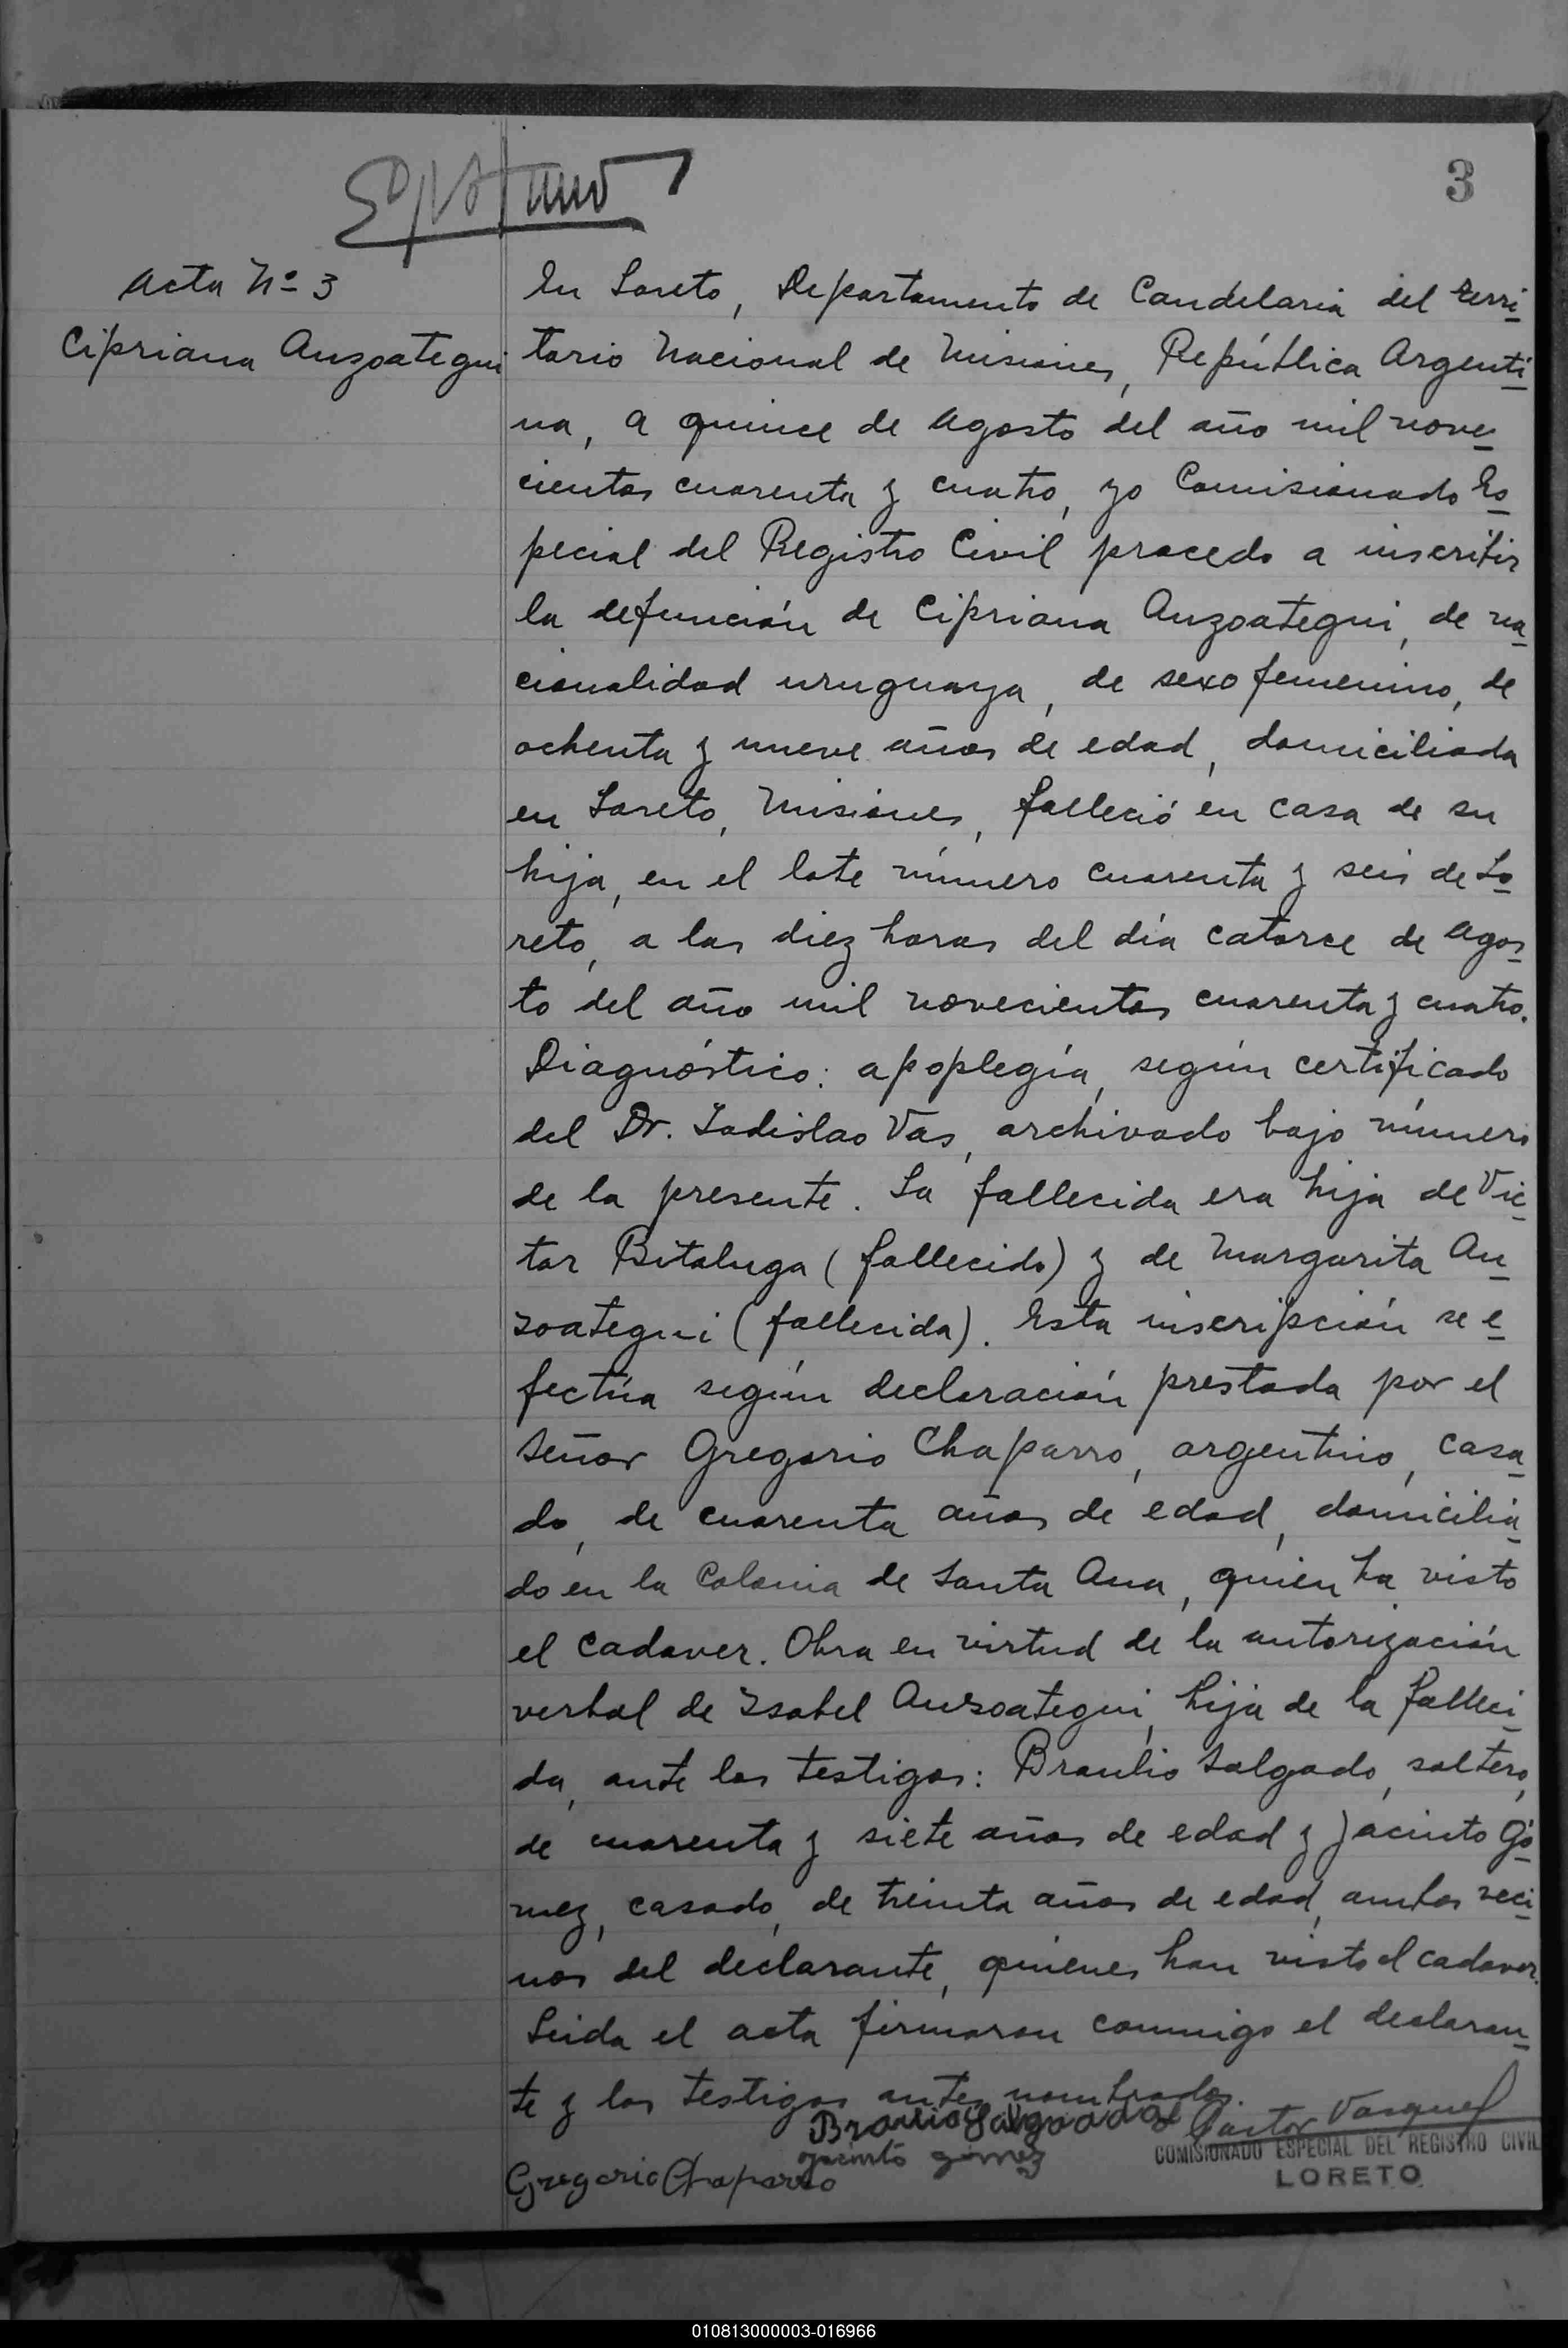 3
Acta Nº 3
Cipriana Anzoategui
En Loreto, Departamento de Candelaria del terri-
torio Nacional de Misiones, República Argenti-
na, a quince de Agosto del año mil nove-
cientos cuarenta y cuatro, yo Comisionado Es-
pecial del Registro Civil procedo a inscribir
la defunción de Cipriana Anzoategui, de na-
cionalidad uruguaya, de sexo femenino, de
ochenta y nueve años de edad, domiciliada
en Loreto, Misiones, falleció en casa de su
hija, en el lote número cuarenta y seis de Lo-
reto, a las diez horas del día catorce de Agos-
to del año mil novecientos cuarenta y cuatro.
Diagnóstico: apoplegía, según certificado
del Dr. Ladislao Vas, archivado bajo número
de la presente. La fallecida era hija de Vic-
tor Bitaluga (fallecido) y de Margarita An-
zoategui (fallecida). Esta inscripción se e-
fectúa según declaración prestada por el
Señor Gregorio Chaparro, argentino, casa-
do, de cuarenta años de edad, domicilia-
do en la Colonia de Santa Ana, quien ha visto
el cadaver. Obra en virtud de la autorización
verbal de Isabel Anzoategui, hija de la falleci-
da, ante los testigos: Braulio Salgado, soltero,
de cuarenta y siete años de edad y Jacinto Gó-
mez, casado, de treinta años de edad, ambos veci-
nos del declarante, quienes han visto el cadaver.
Leida el acta firmaron conmigo el declaran-
te y los testigos antes nombrados.
Braulio Salgado
Pastor Vasquez
Jacinto gomez
COMISIONADO ESPECIAL DEL REGISTRO CIVIL
LORETO
Gregorio Chaparro
010813000003-016966